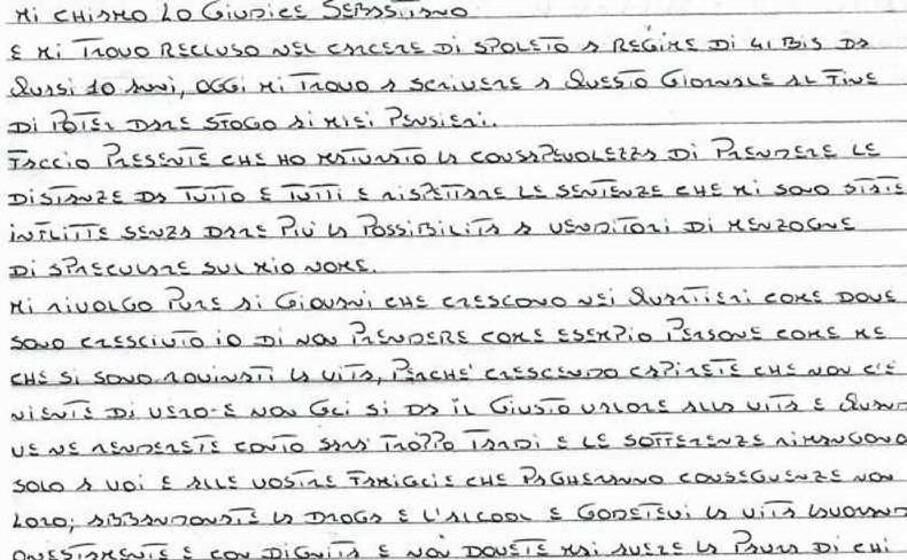 MI CHIAMO LO GIUDICE SEBASTIANO
E MI TROVO RECLUSO NEL CARCERE DI SPOLETO A REGIME DI 41 BIS DA
QUASI 10 ANNI, OGGI MI TROVO A SCRIVERE A QUESTO GIORNALE AL FINE
DI POTER DARE SFOGO AI MIEI PENSIERI.
FACCIO PRESENTE CHE HO MATURATO LA CONSAPEVOLEZZA DI PRENDERE LE
DISTANZE DA TUTTO E TUTTI E RISPETTARE LE SENTENZE CHE MI SONO STATE
INFLITTE SENZA DARE PIÙ LA POSSIBILITA A VENDITORI DI MENZOGNE
DI SPRECULARE SUL MIO NOME.
MI RIVOLGO PURE AI GIOVANI CHE CRESCONO NEI QUARTIERI COME DOVE
SONO CRESCIUTO IO DI NON PRENDERE COME ESEMPIO PERSONE COME ME
CHE SI SONO ROVINATI LA VITA, PERCHE' CRESCENDO CAPIRETE CHE NON C'E'
NIENTE DI VERO-E NON GLI SI DA IL GIUSTO VALORE ALLA VITA E
VE NE RENDERETE CONTO SARA' TROPPO TARDI E LE SOFFERENZE RIMANGONO
SOLO A VOI E ALLE VOSTRE FAMIGLIE CHE PAGHERANNO CONSEGUENZE NON
LORO; ABBANDONATE LA DROGA E L'ALCOOL E GODETEVI LA VITA
ONESTAMENTE E CON DIGNITA E NON DOVETE MAI AVERE LA PAURA DI CHI